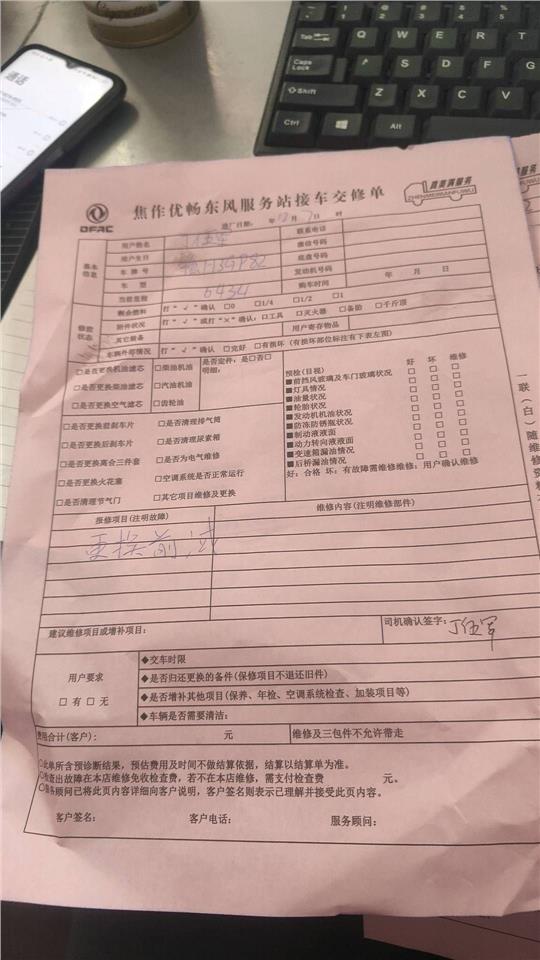 通话
Q W E R T Y U
Tab
Caps Lock A S D F G
Shift Z X C V B
Ctrl Alt
DFAC
焦作优畅东风服务站接车交修单
真美满服务
ZHENMEIMANFUWU
进厂日期: 年 12 月 7 日 时
基本信息
用户姓名 丁伍军 联系电话
用户生日 微信号码
车牌号 底盘号码
车型 发动机号码
当前里程 6434 购车时间 年 月 日
修前状态
剩余燃料 打“√”确认 □0 □1/4 □1/2 □1
附件状况 打“√”或打“×”确认:□工具 □灭火器 □备胎 □千斤顶
其它装备 用户寄存物品
车辆外部情况 打“√”确认 □完好 □有损坏(有损坏部位标注有下表左图)
□是否更换机油滤芯 □柴油机油 是否定件,是□否□明细:
□是否更换柴油滤芯 □汽油机油
□是否更换空气滤芯 □齿轮油
□是否更换前刹车片 □是否清理排气筒
□是否更换后刹车片 □是否清理尿素箱
□是否更换离合三件套 □是否为电气维修
□是否更换火花塞 □空调系统是否正常运行
□是否清理节气门 □其它项目维修及更换
预检(目视) 好 坏 维修
■前挡风玻璃及车门玻璃状况 □ □ □
■灯具情况 □ □ □
■油量状况 □ □ □
■轮胎状况 □ □ □
■发动机机油状况 □ □ □
■防冻防锈瓶状况 □ □ □
■制动液液面 □ □ □
■动力转向液液面 □ □ □
■变速箱漏油情况 □ □ □
■后桥漏油情况 □ □ □
好:合格 坏:有故障需维修维修:用户确认维修
报修项目(注明故障) 维修内容(注明维修部件)
更换前
建议维修项目或增补项目: 司机确认签字: 丁伍军
用户要求
□有 □无
◆交车时限
◆是否归还更换的备件(保修项目不退还旧件)
◆是否增补其他项目(保养、年检、空调系统检查、加装项目等)
◆车辆是否需要清洁:
费用合计(客户): 元 维修及三包件不允许带走
○此单所含预诊断结果,预估费用及时间不做结算依据,结算以结算单为准。
○检查出故障在本店维修免收检查费,若不在本店维修,需支付检查费 元。
○服务顾问已将此页内容详细向客户说明,客户签名则表示已理解并接受此页内容。
客户签名: 客户电话: 服务顾问:
一联(白)随维修